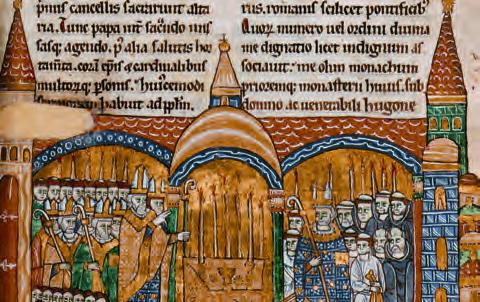 p̃mis cancellis sacrarunt alta
ria. Tunc papa int̃ sac̃ndo mis
sasq; agendo. p̃ alia salutis hor
tam̃ta. corã ep̃is & cardinalibus
multorꝗ; p̃sonis. huiᵓcemodi
habuit ad pl̃m.
rus. romanis scilicet pontificibꝰ.
Quoꝝ numero uel ordini diuina
me dignatio licet indignum as
sociauit. me olim monachum
prioremq; monasterii huius. sub
domno ac uenerabili hugone